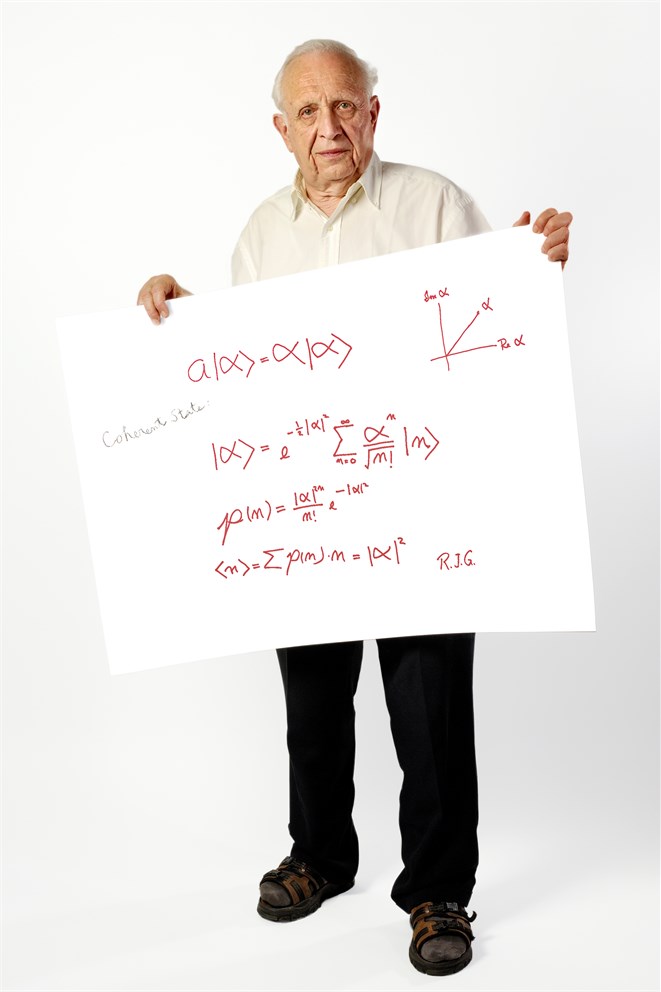 Im α
α
Re α
a|α⟩ = α|α⟩
Coherent State:
|α⟩ = e^{-½|α|²} ∑_{n=0}^{∞} αⁿ/√n! |n⟩
p(n) = |α|²ⁿ/n! e^{-|α|²}
⟨n⟩ = ∑ p(n)·n = |α|²
R.J.G.